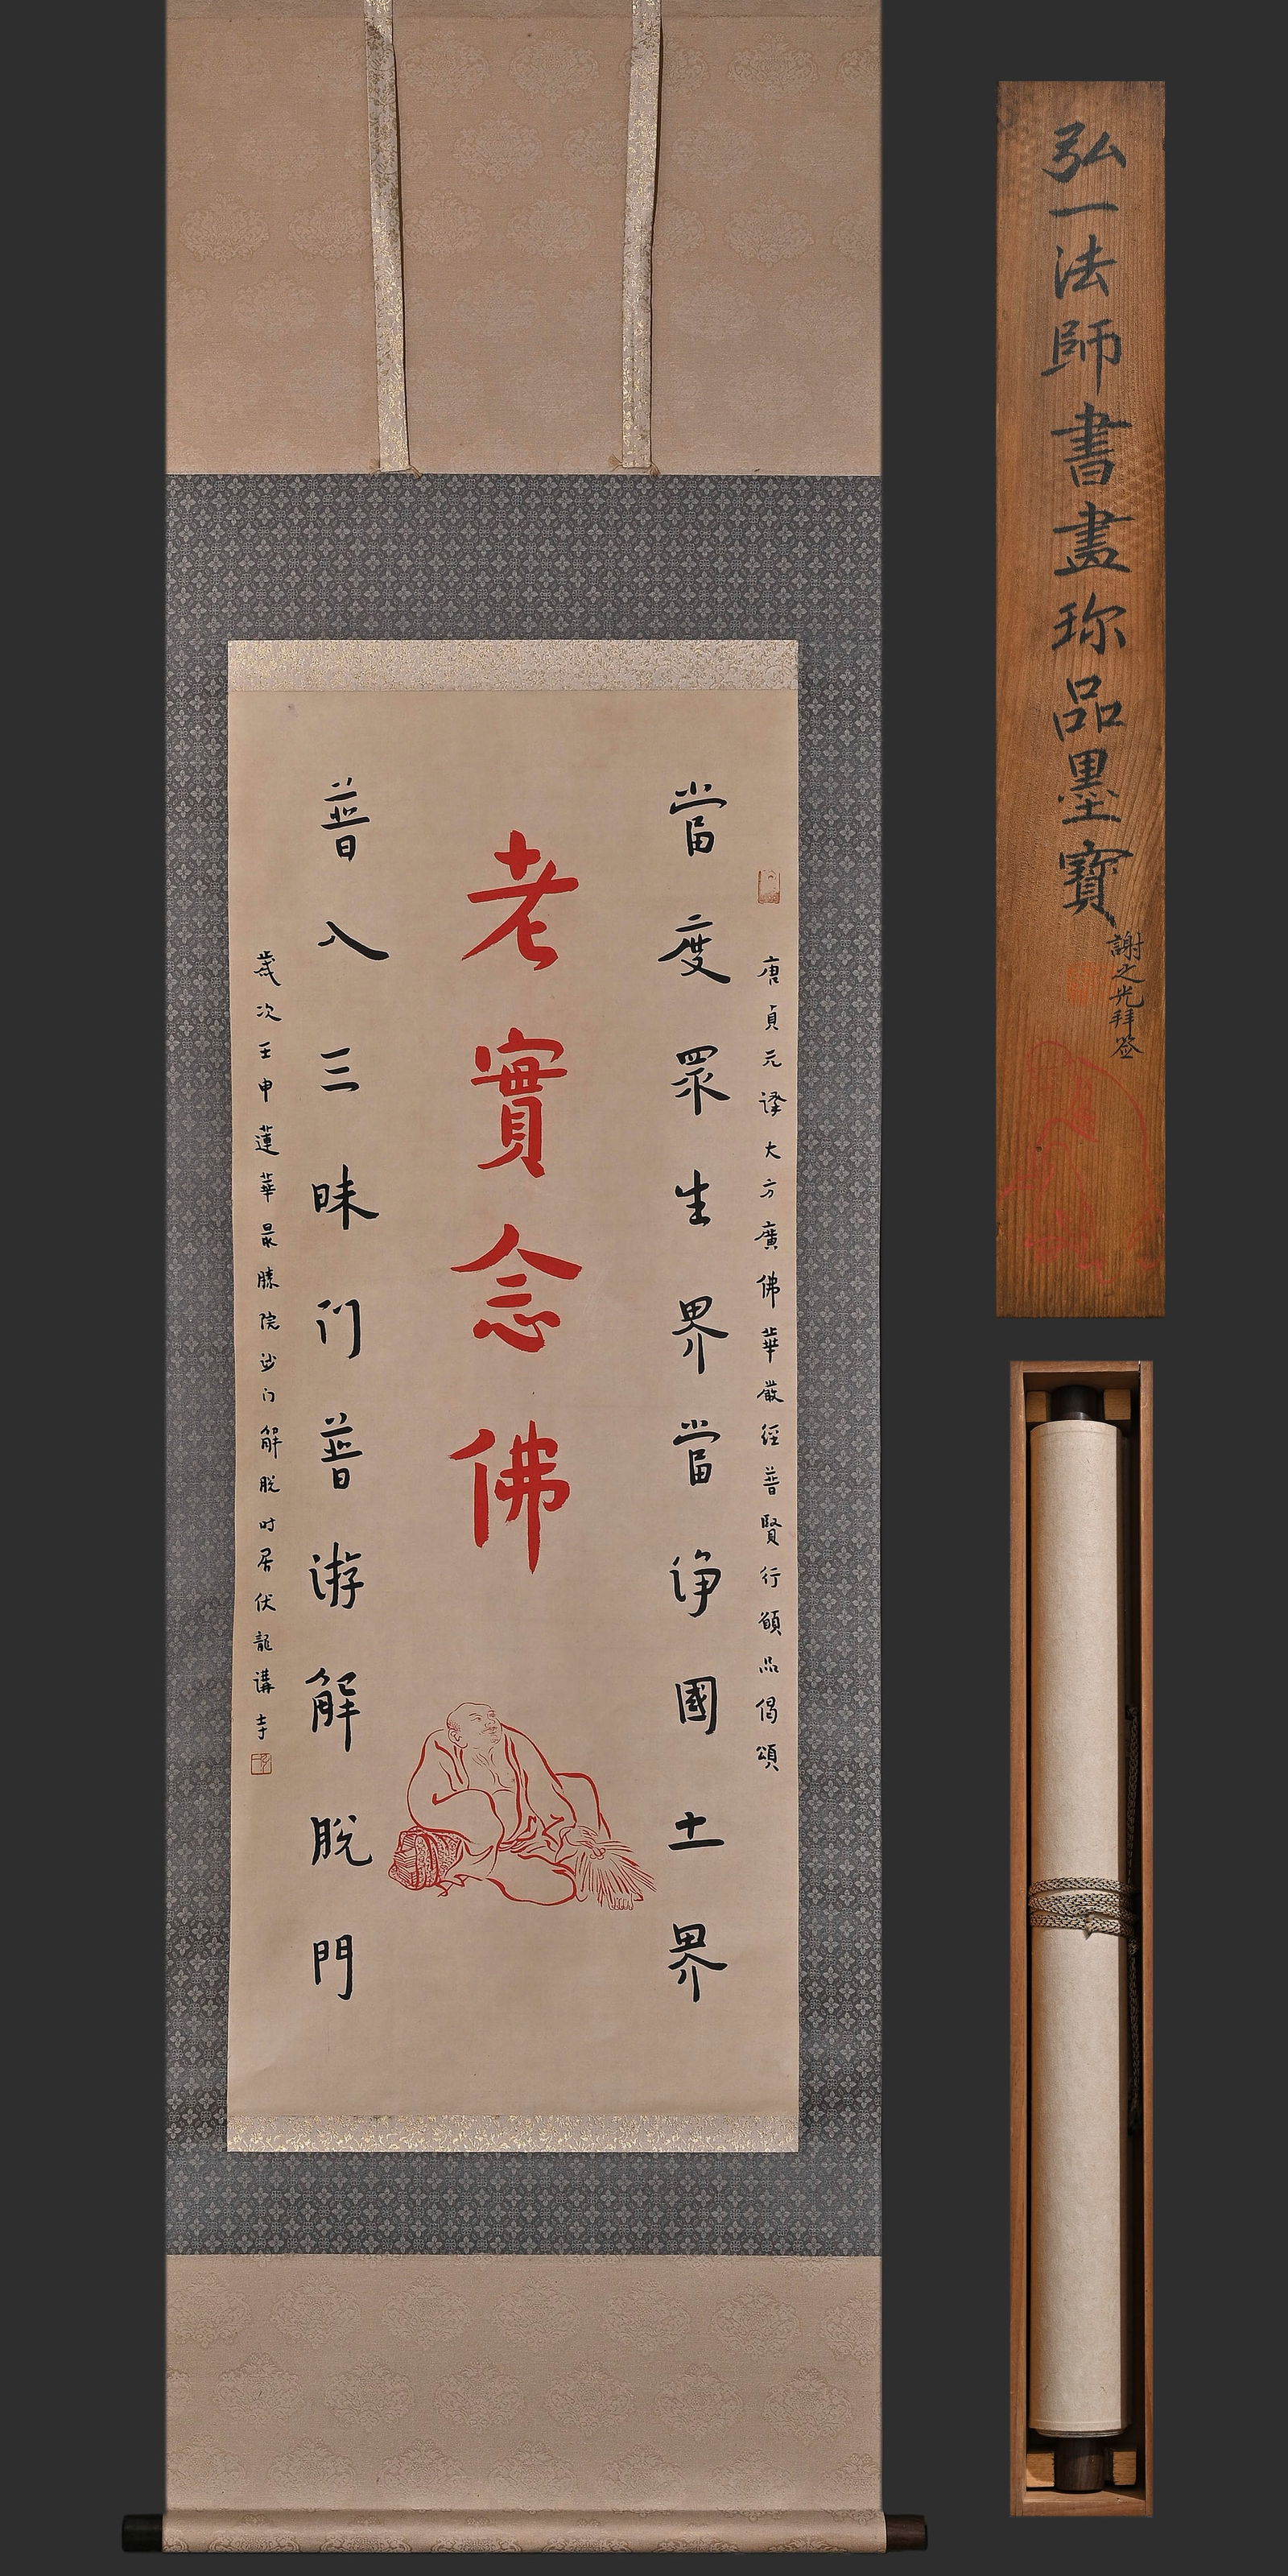 唐貞元譯大方廣佛華嚴經普賢行願品偈頌
當度眾生界當淨國土界
老實念佛
普入三昧门普游解脫門
歲次壬申蓮華最勝院沙门解脫时居伏龍講寺
弘一法師書畫珎品墨寶
謝之光拜签